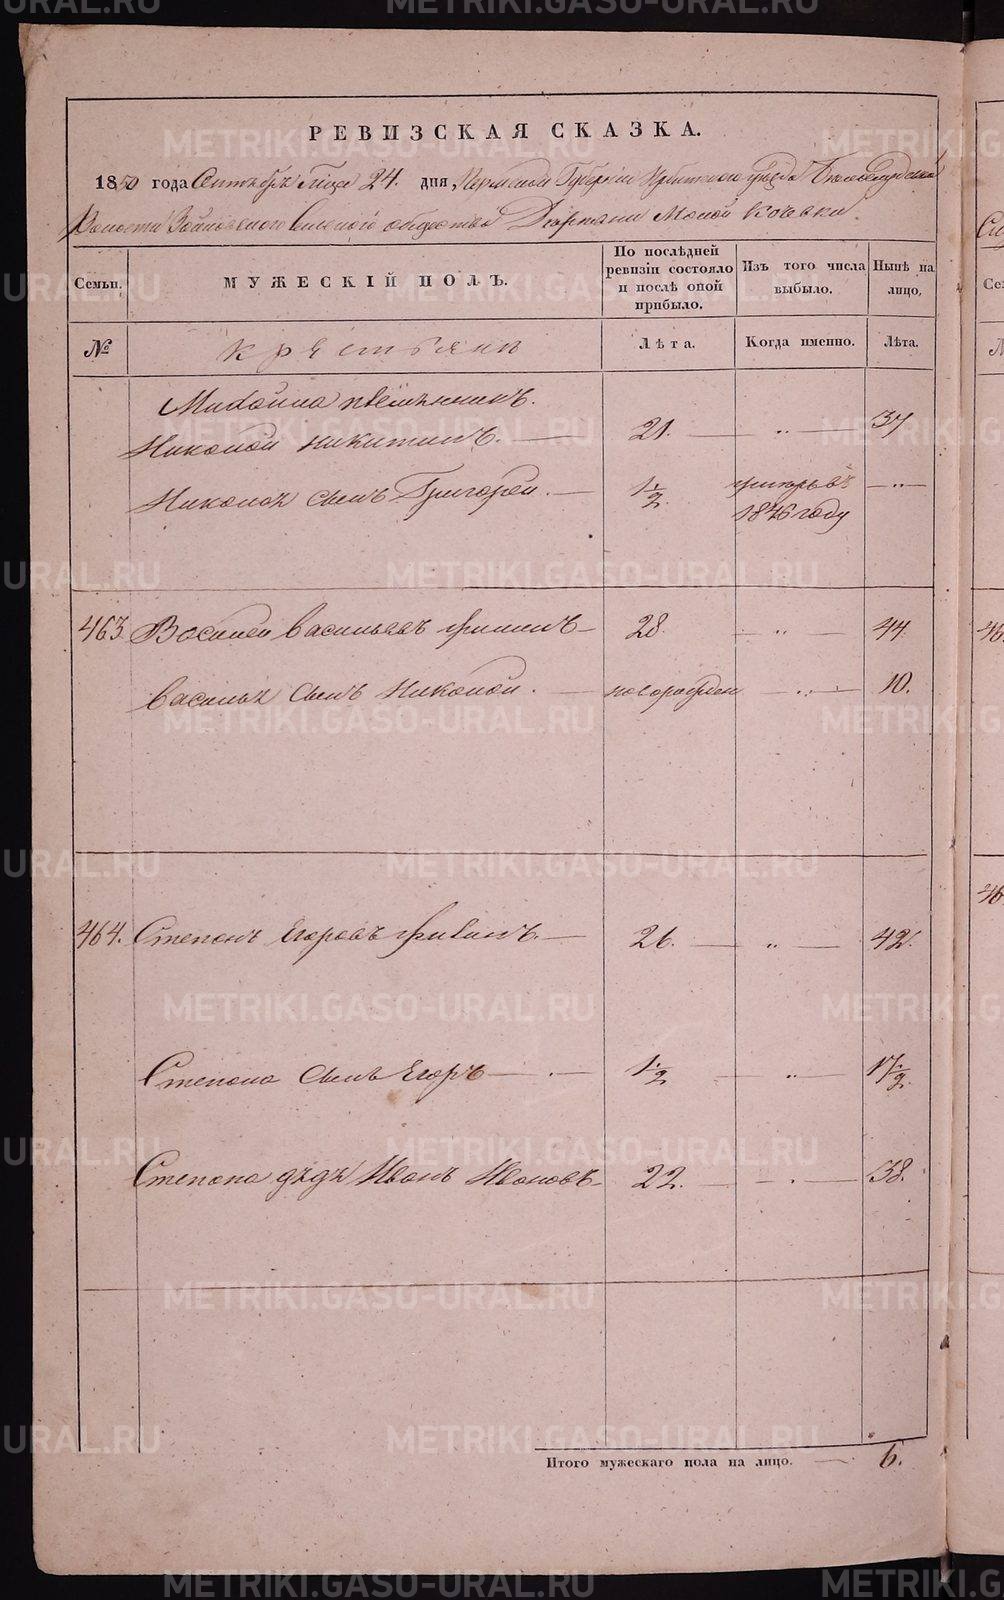 РЕВИЗСКАЯ СКАЗКА.
1850 года Сентября 24. дня Пермской Губернии Ирбитского уѣзда Белослудской
Волости Зайковского сельского общества Деревни Малой Кочевки.
Семьи.
МУЖЕСКІЙ ПОЛЪ.
По послѣдней ревизіи состояло и послѣ оной прибыло.
Изъ того числа выбыло.
Нынѣ на лицо,
№
крестьяне
Лѣта.
Когда именно.
Лѣта.
племянникъ.
Николай Никитинъ. 21. „ 37
Николая сынъ Григорей. 1/2 умеръ въ 1846 году „
463 Василей Васильевъ 28. „ 44.
Василья сынъ Николай. послѣ рожден „ 10.
464. Степанъ Егоровъ 26. „ 42.
Степана сынъ Егоръ 1/2 „ 17 1/2.
Степана дядя Иванъ Ивановъ 22. 38.
Итого мужескаго пола на лицо. 6.
METRIKI.GASO-URAL.RU